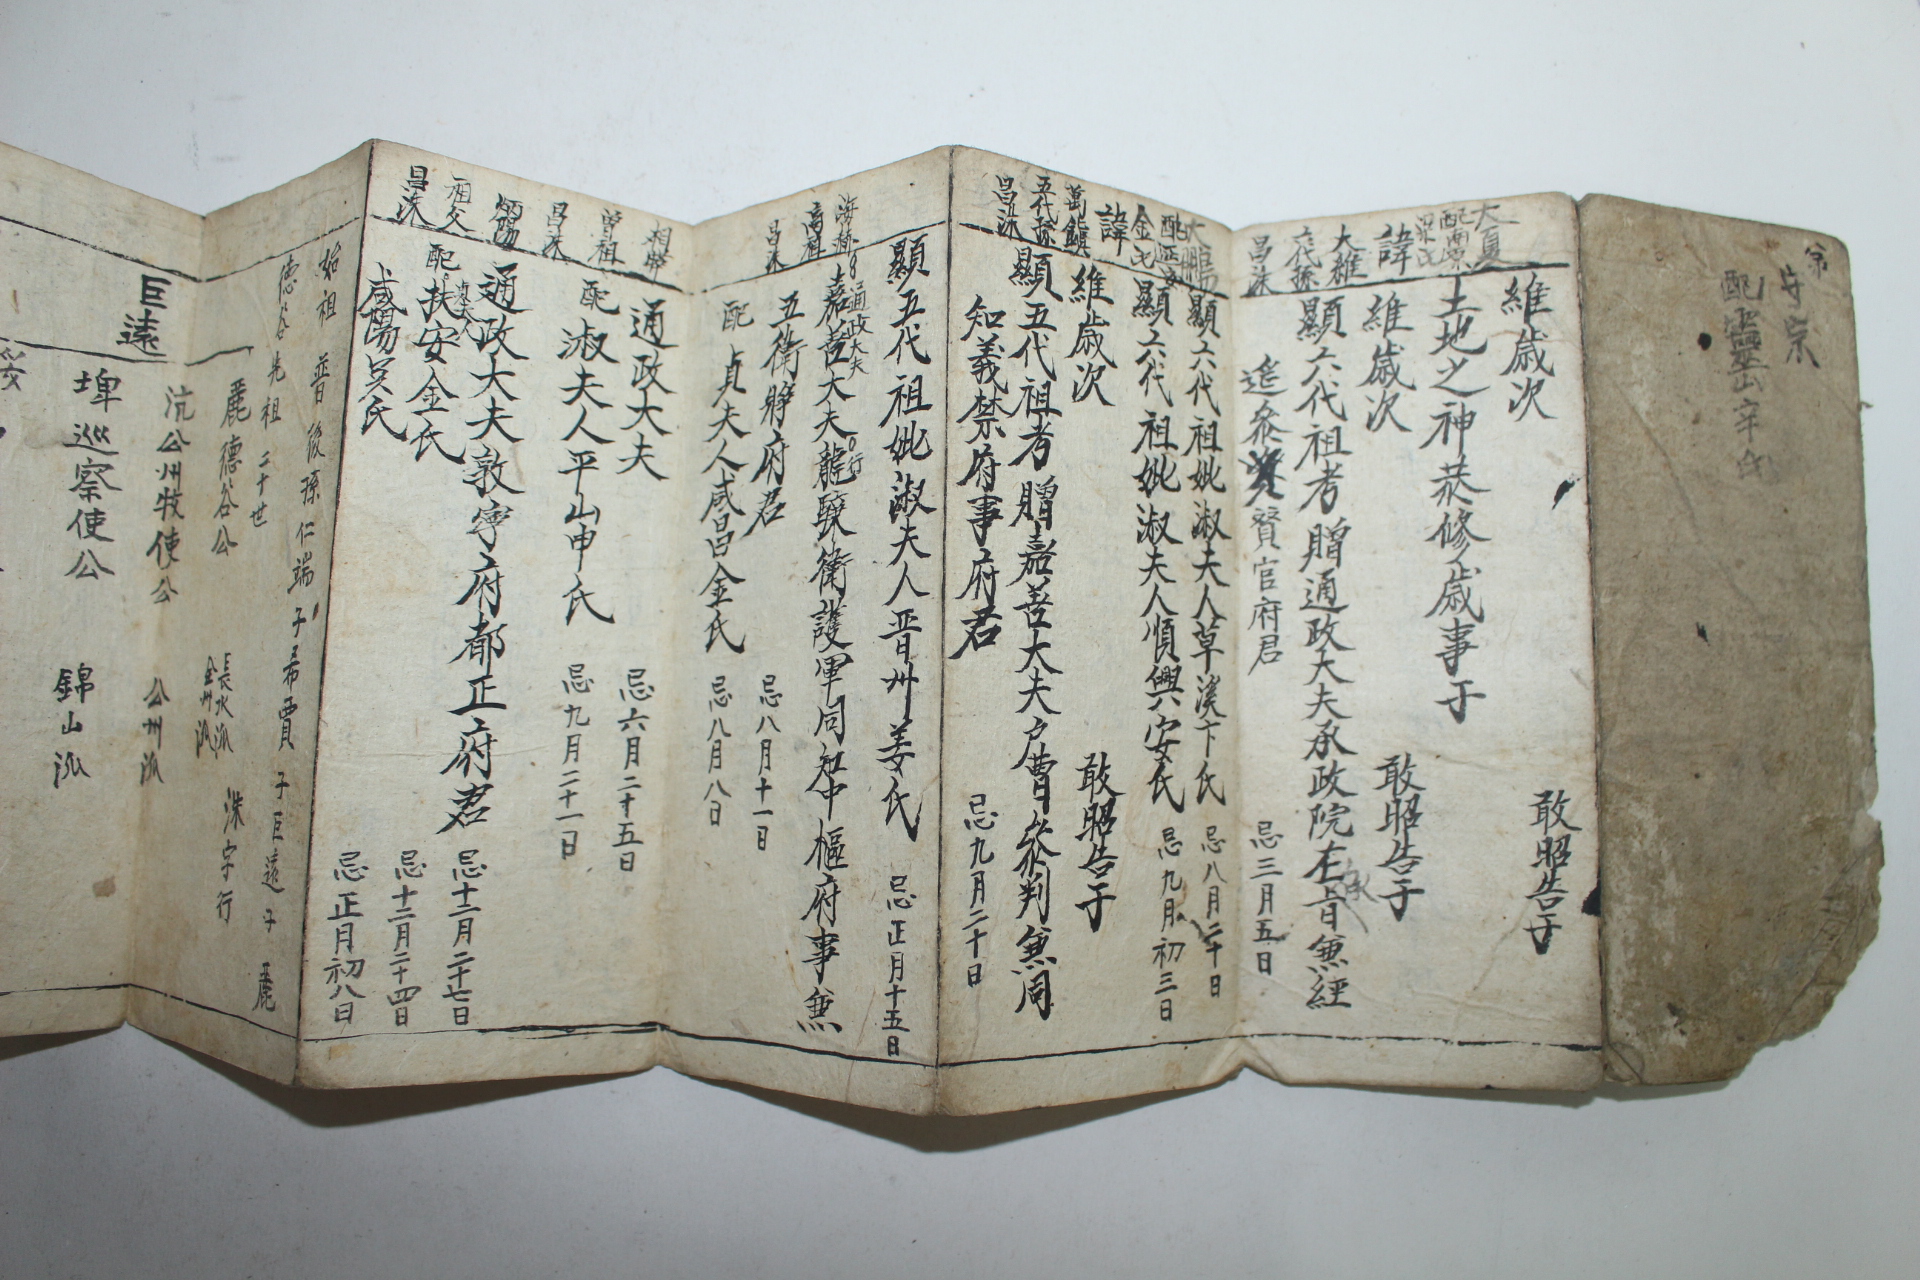 守宗
配靈山辛氏
維歲次
敢昭告于
土地之神恭修歲事于
大夏
配南原梁氏
諱
維歲次
敢昭告于
大雄
代孫
昌洙
顯六代祖考贈通政大夫承政院左承旨兼經
筵參贊官府君
忌三月五日
大鵬
顯六代祖妣淑夫人草溪卞氏
忌八月二十日
配延安金氏
顯六代祖妣淑夫人順興安氏
忌九月初三日
諱
維歲次
敢昭告于
萬鎮
五代孫
昌洙
顯五代祖考贈嘉善大夫戶曹參判兼同
知義禁府事府君
忌九月二十日
顯五代祖妣淑夫人晋州姜氏
忌正月十五日
高祖
昌洙
通政大夫
嘉善大夫龍驤衛護軍同知中樞府事兼
五衛將府君
忌八月十一日
配
貞夫人咸昌金氏
忌八月八日
曾祖
昌洙
通政大夫
忌六月二十五日
配
淑夫人平山申氏
忌九月二十一日
祖父
昌洙
通政大夫敦寧府都正府君
忌十二月二十七日
配扶安金氏
忌十二月二十四日
咸陽吳氏
忌正月初八日
始祖普後孫仁端子希賈子巨遠子麗
德谷先祖二十世
麗德谷公
長水派
金州派
洙字行
沆公州牧使公
公州派
巨遠
埤巡察使公
錦山派